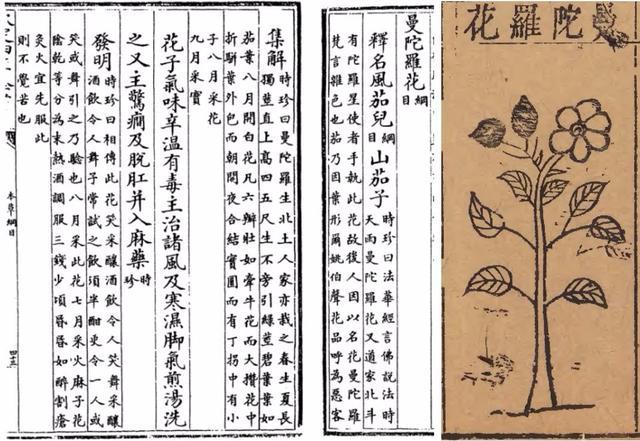 陀羅花
曼陀羅花綱目
釋名風茄兒綱目山茄子時珍曰法華經言佛說法時
天雨曼陀羅花又道家北斗
有陀羅星使者手執此花故後人因以名花曼陀羅
梵言雜色也茄乃因葉形爾姚伯聲花品呼為惡客
集解時珍曰曼陀羅生北土人家亦栽之春生夏長
獨莖直上高四五尺生不旁引綠莖碧葉葉如
茄葉八月開白花凡六瓣狀如牽牛花而大攢花中
折駢葉外包而朝開夜合結實圓而有丁拐中有小
子八月采花
九月采實
花子氣味辛溫有毒主治諸風及寒濕脚氣煎湯洗
之又主驚癇及脫肛并入麻藥時珍
發明時珍曰相傳此花笑采釀酒飲令人笑舞采釀
酒飲令人舞予常試之飲須半酣更令一人或
笑或舞引之乃驗也八月采此花七月采火麻子花
陰乾等分為末熱酒調服三錢少頃昏昏如醉割瘡
灸火宜先服此
則不覺苦也
本草綱目
四三